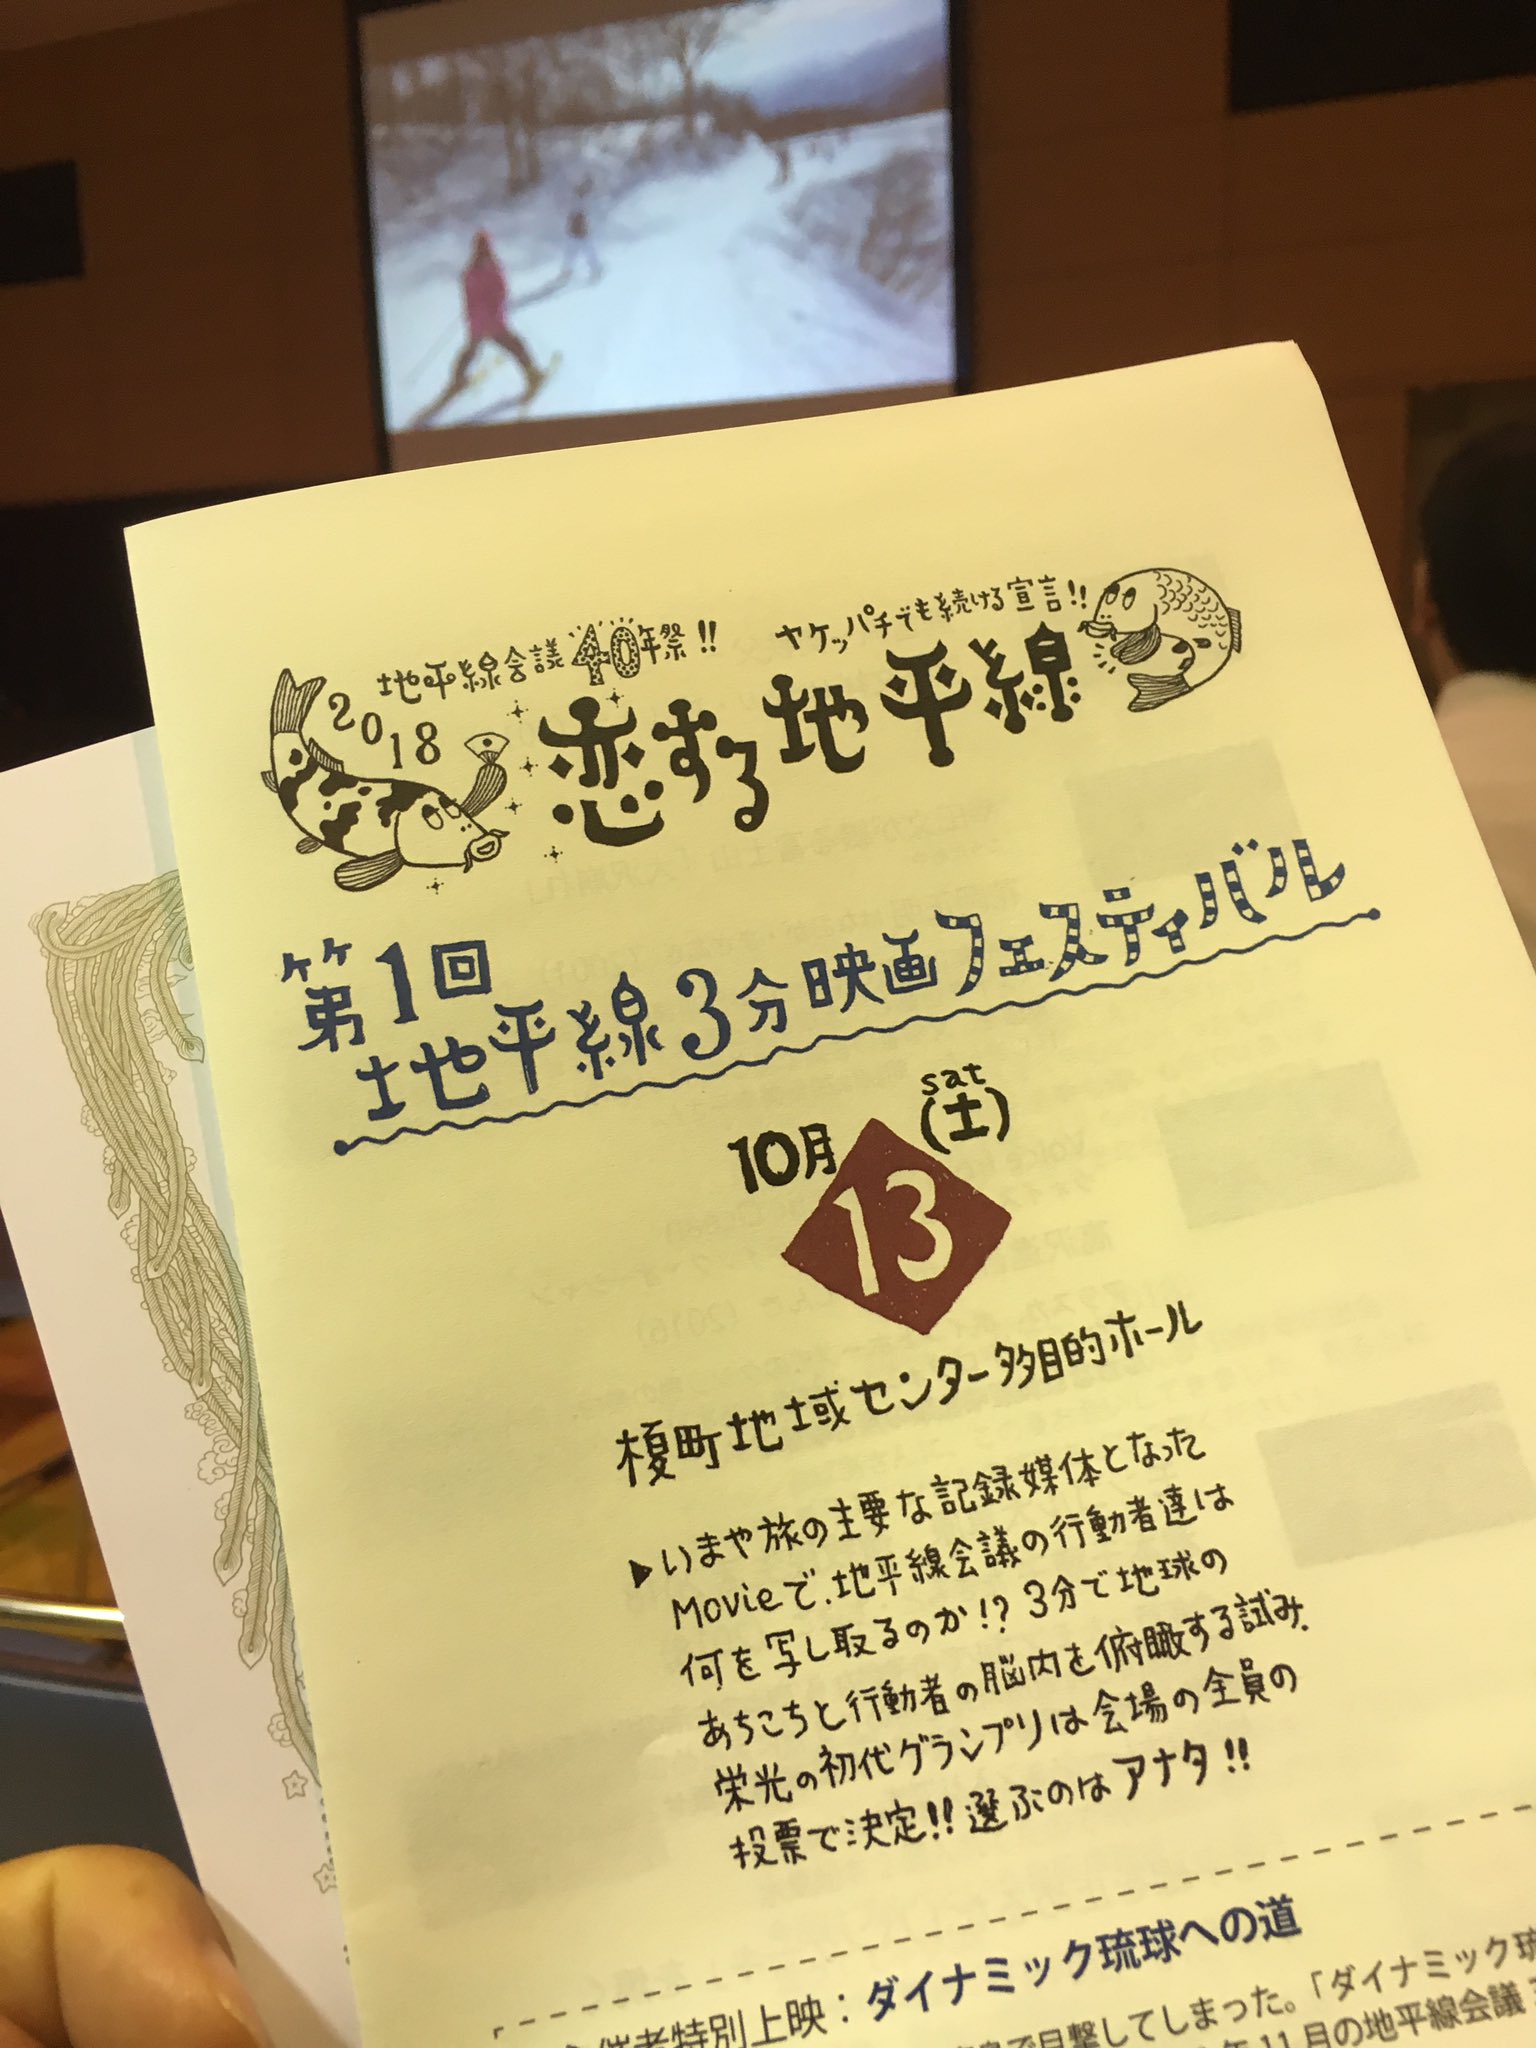 2018
地平線会議40年祭!!
ヤケッパチでも続ける宣言!!
恋する地平線
第1回
地平線3分映画フェスティバル
10月13(土)
sat
榎町地域センター多目的ホール
▶いまや旅の主要な記録媒体となった
Movieで、地平線会議の行動者達は
何を写し取るのか!? 3分で地球の
あちこちと行動者の脳内を俯瞰する試み.
栄光の初代グランプリは会場の全員の
投票で決定!! 選ぶのはアナタ!!
催者特別上映：ダイナミック琉球への道
で目撃してしまった。「ダイナミック琉
年11月の地平線会議